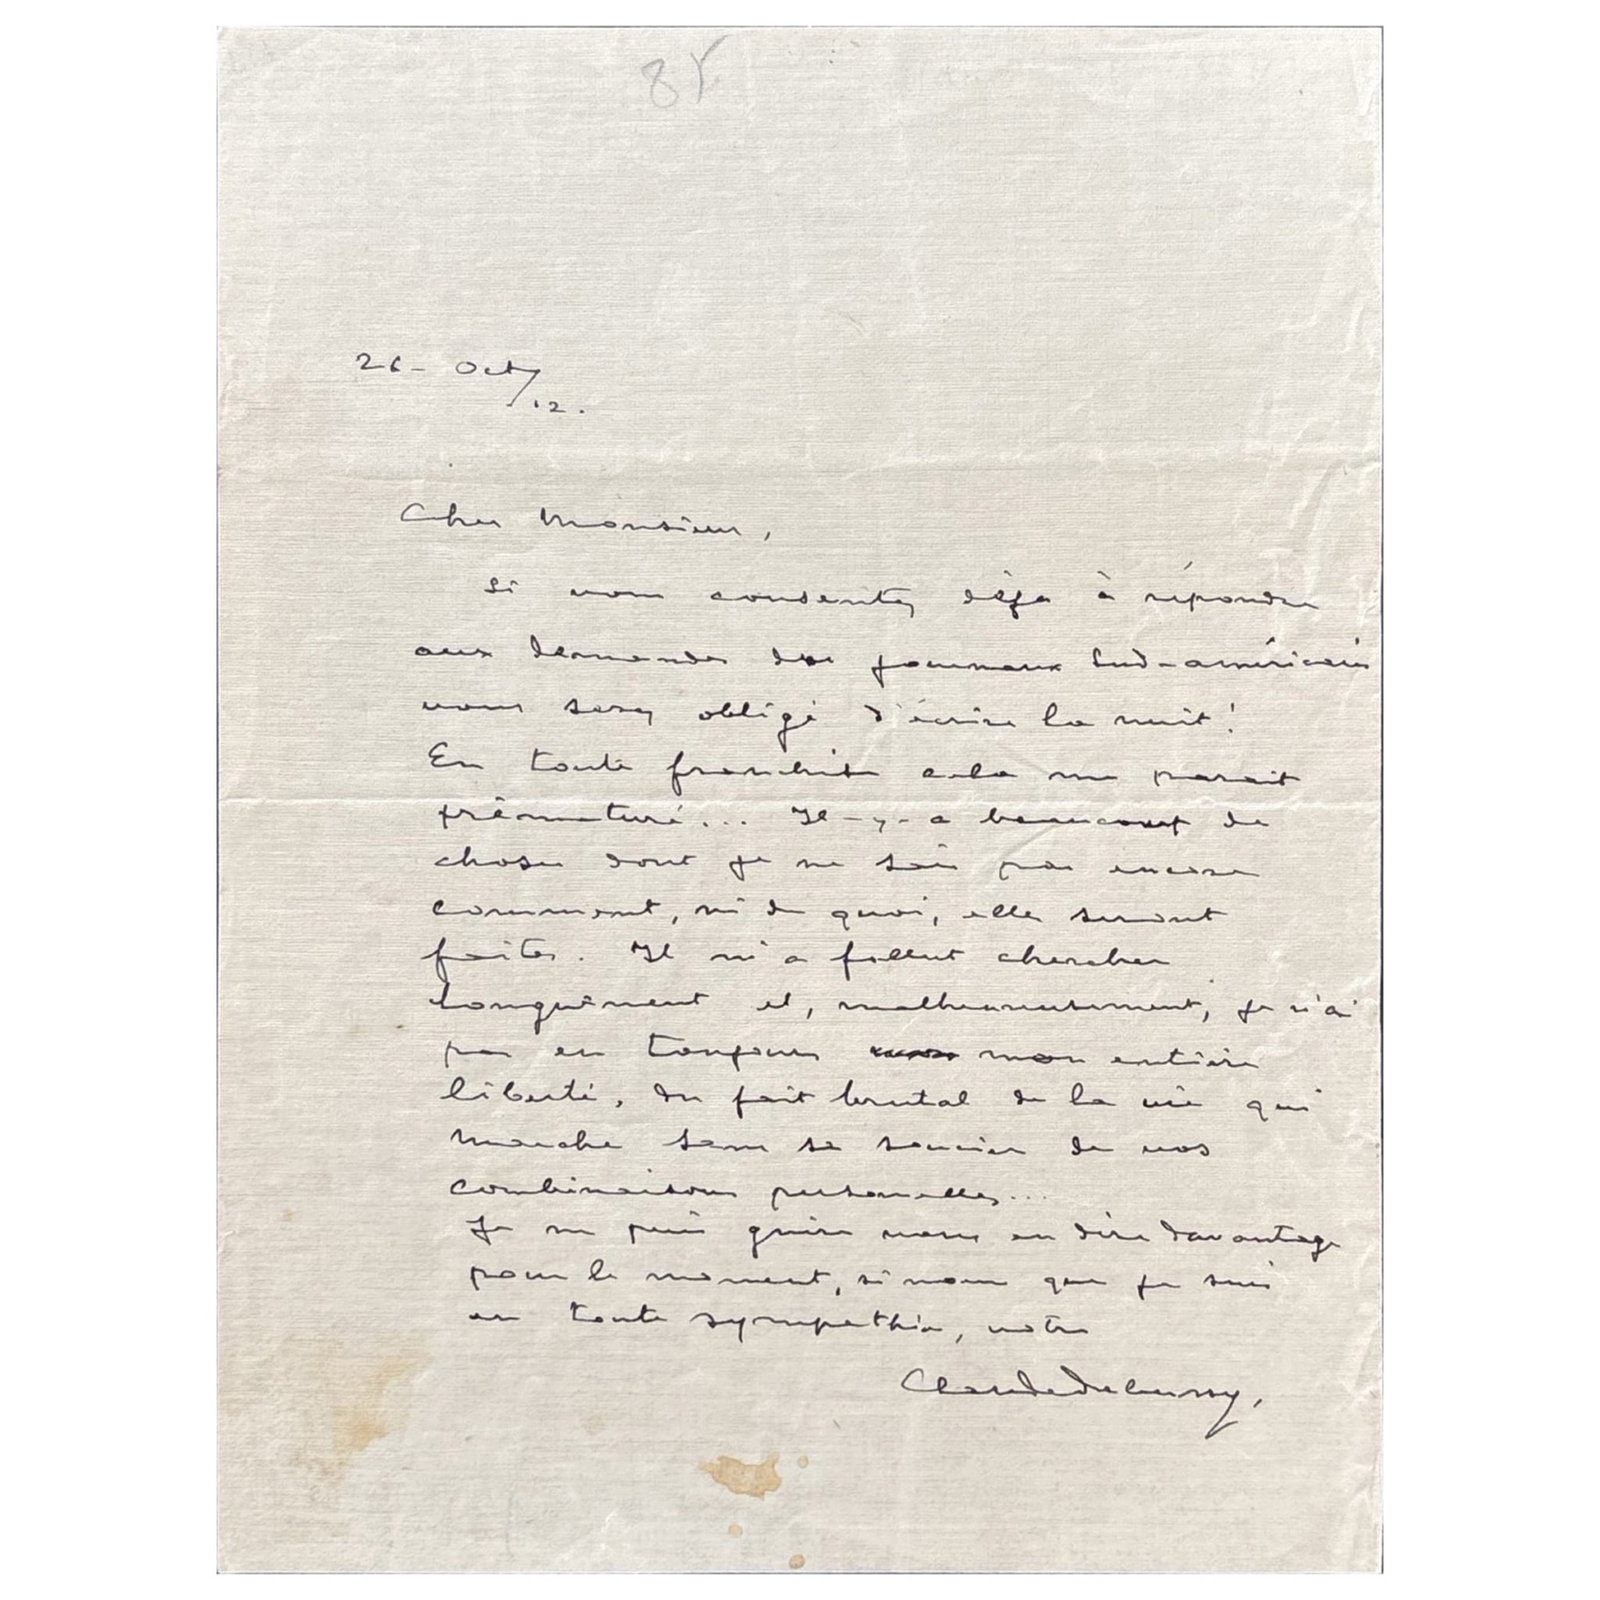 85
26 - Oct/
12.
Cher Monsieur,
Si vous consentez déjà à répondre
aux demandes des journaux Sud-américains
vous serez obligé d'écrire la nuit!
En toute franchise cela me parait
prématuré... Il-y-a beaucoup de
choses dont je ne sais pas encore
comment, ni de quoi, elles seront
faites. Il m'a fallut chercher
longuement et, malheureusement, je n'ai
pas eu toujours mon entière
liberté, du fait brutal de la vie qui
marche sans se soucier de nos
combinaisons personelles...
Je ne puis guère vous en dire davantage
pour le moment, sinon que je suis
en toute sympathie, votre
Claude Debussy,